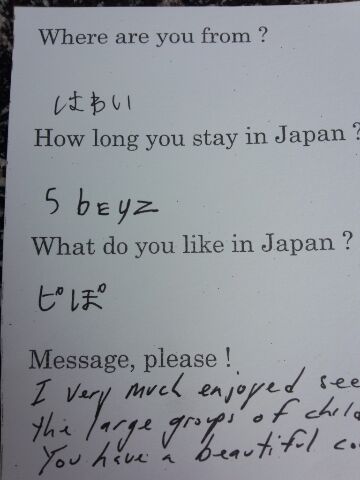 Where are you from ?
はわい
How long you stay in Japan ?
5 bEyz
What do you like in Japan ?
ピぽ
Message, please !
I very much enjoyed see
the large groups of chil
You have a beautiful co